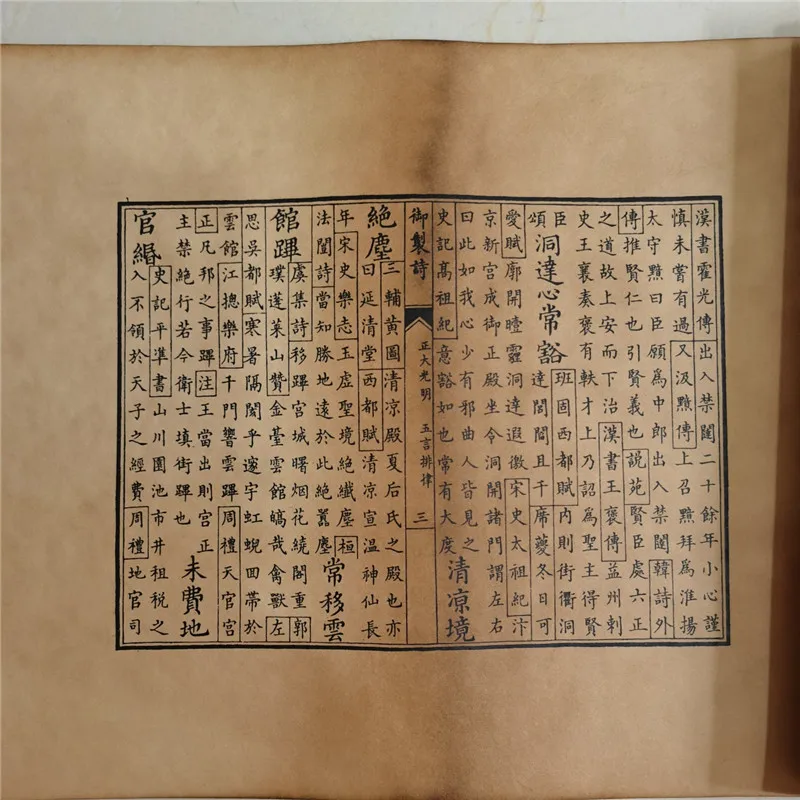 漢書霍光傳出入禁闥二十餘年小心謹
慎未嘗有過又汲黯傳上召黯拜為淮揚
太守黯曰臣願為中郎出入禁闥韓詩外
傳推賢仁也引賢義也說苑賢臣處六正
之道故上安而下治漢書王襃傳益州刺
史王襄奏襃有軼才上乃詔為聖主得賢
臣
頌
洞達心常豁
班固西都賦內則街衢洞
達閭閻且千席夔冬日可
愛賦廓開曀霾洞達遐徼宋史太祖紀汴
京新宮成御正殿坐令洞開諸門謂左右
曰此如我心少有邪曲人皆見之
史記高祖紀意豁如也常有大度
清涼境
御製詩
正大光明 五言排律
三
絕塵
三輔黃圖清涼殿夏后氏之殿也亦
曰延清堂西都賦清涼宣溫神仙長
年宋史樂志玉虛聖境絕纖塵桓
法闓詩當知勝地遠於此絕囂塵
常移雲
館蹕
虞集詩移蹕宮城曙烟花繞閣重郭
璞蓬萊山贊金臺雲館皜哉禽獸左
思吳都賦寒暑隔閡乎邃宇虹蜺回帶於
雲館江摠樂府千門響雲蹕周禮天官宮
正凡邦之事蹕注王當出則宮正
主禁絕行若今衛士填街蹕也
未費地
官緡
史記平準書山川園池市井租稅之
入不領於天子之經費周禮地官司